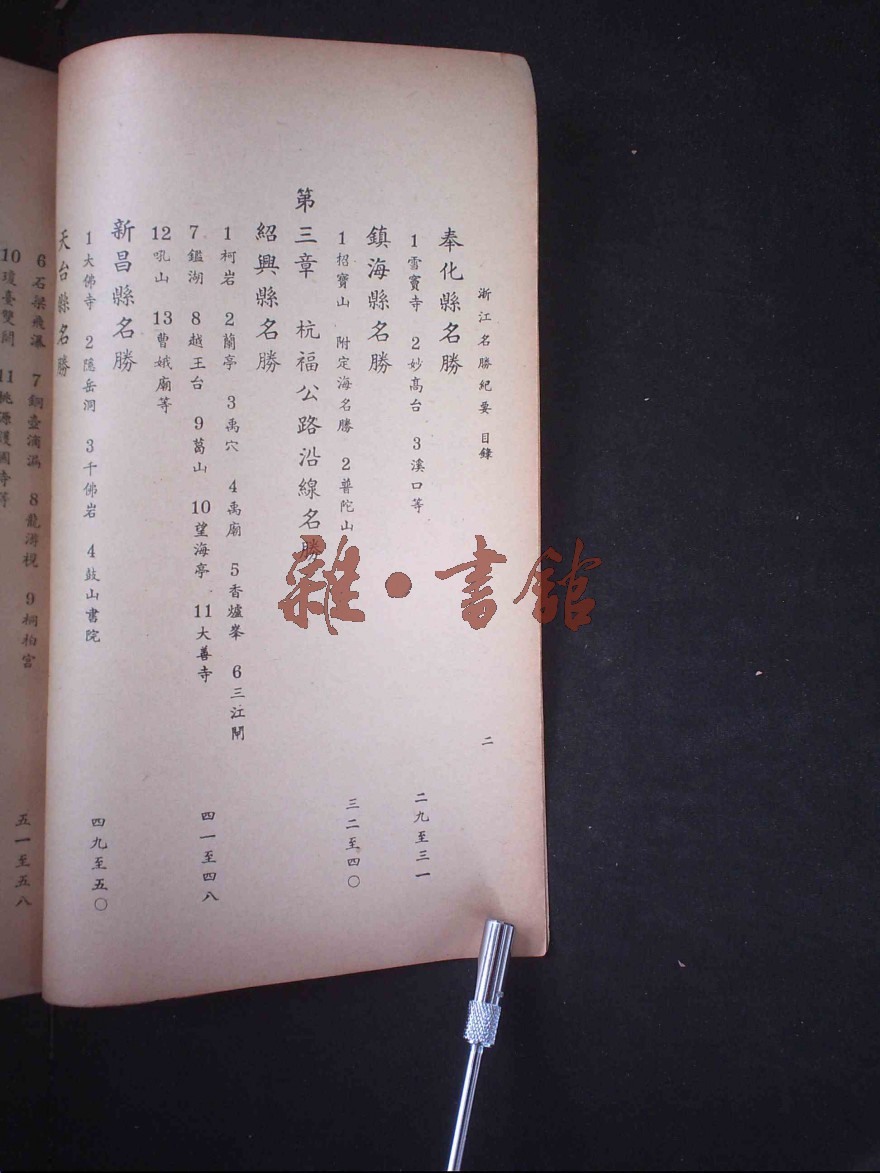 浙江名勝紀要 目錄 二
奉化縣名勝
1雪竇寺 2妙高台 3溪口等 二九至三一
鎮海縣名勝
1招寶山 附定海名勝 2普陀山 三二至四〇
第三章 杭福公路沿線名勝
紹興縣名勝
1柯岩 2蘭亭 3禹穴 4禹廟 5香爐峯 6三江閘
7鑑湖 8越王台 9葛山 10望海亭 11大善寺 四一至四八
12吼山 13曹娥廟等
新昌縣名勝
1大佛寺 2隱岳洞 3千佛岩 4鼓山書院 四九至五〇
天台縣名勝
6石梁飛瀑 7銅壺滴漏 8龍游枧 9桐柏宮
10瓊臺雙闕 11桃源護國寺等 五一至五八
雜·書館